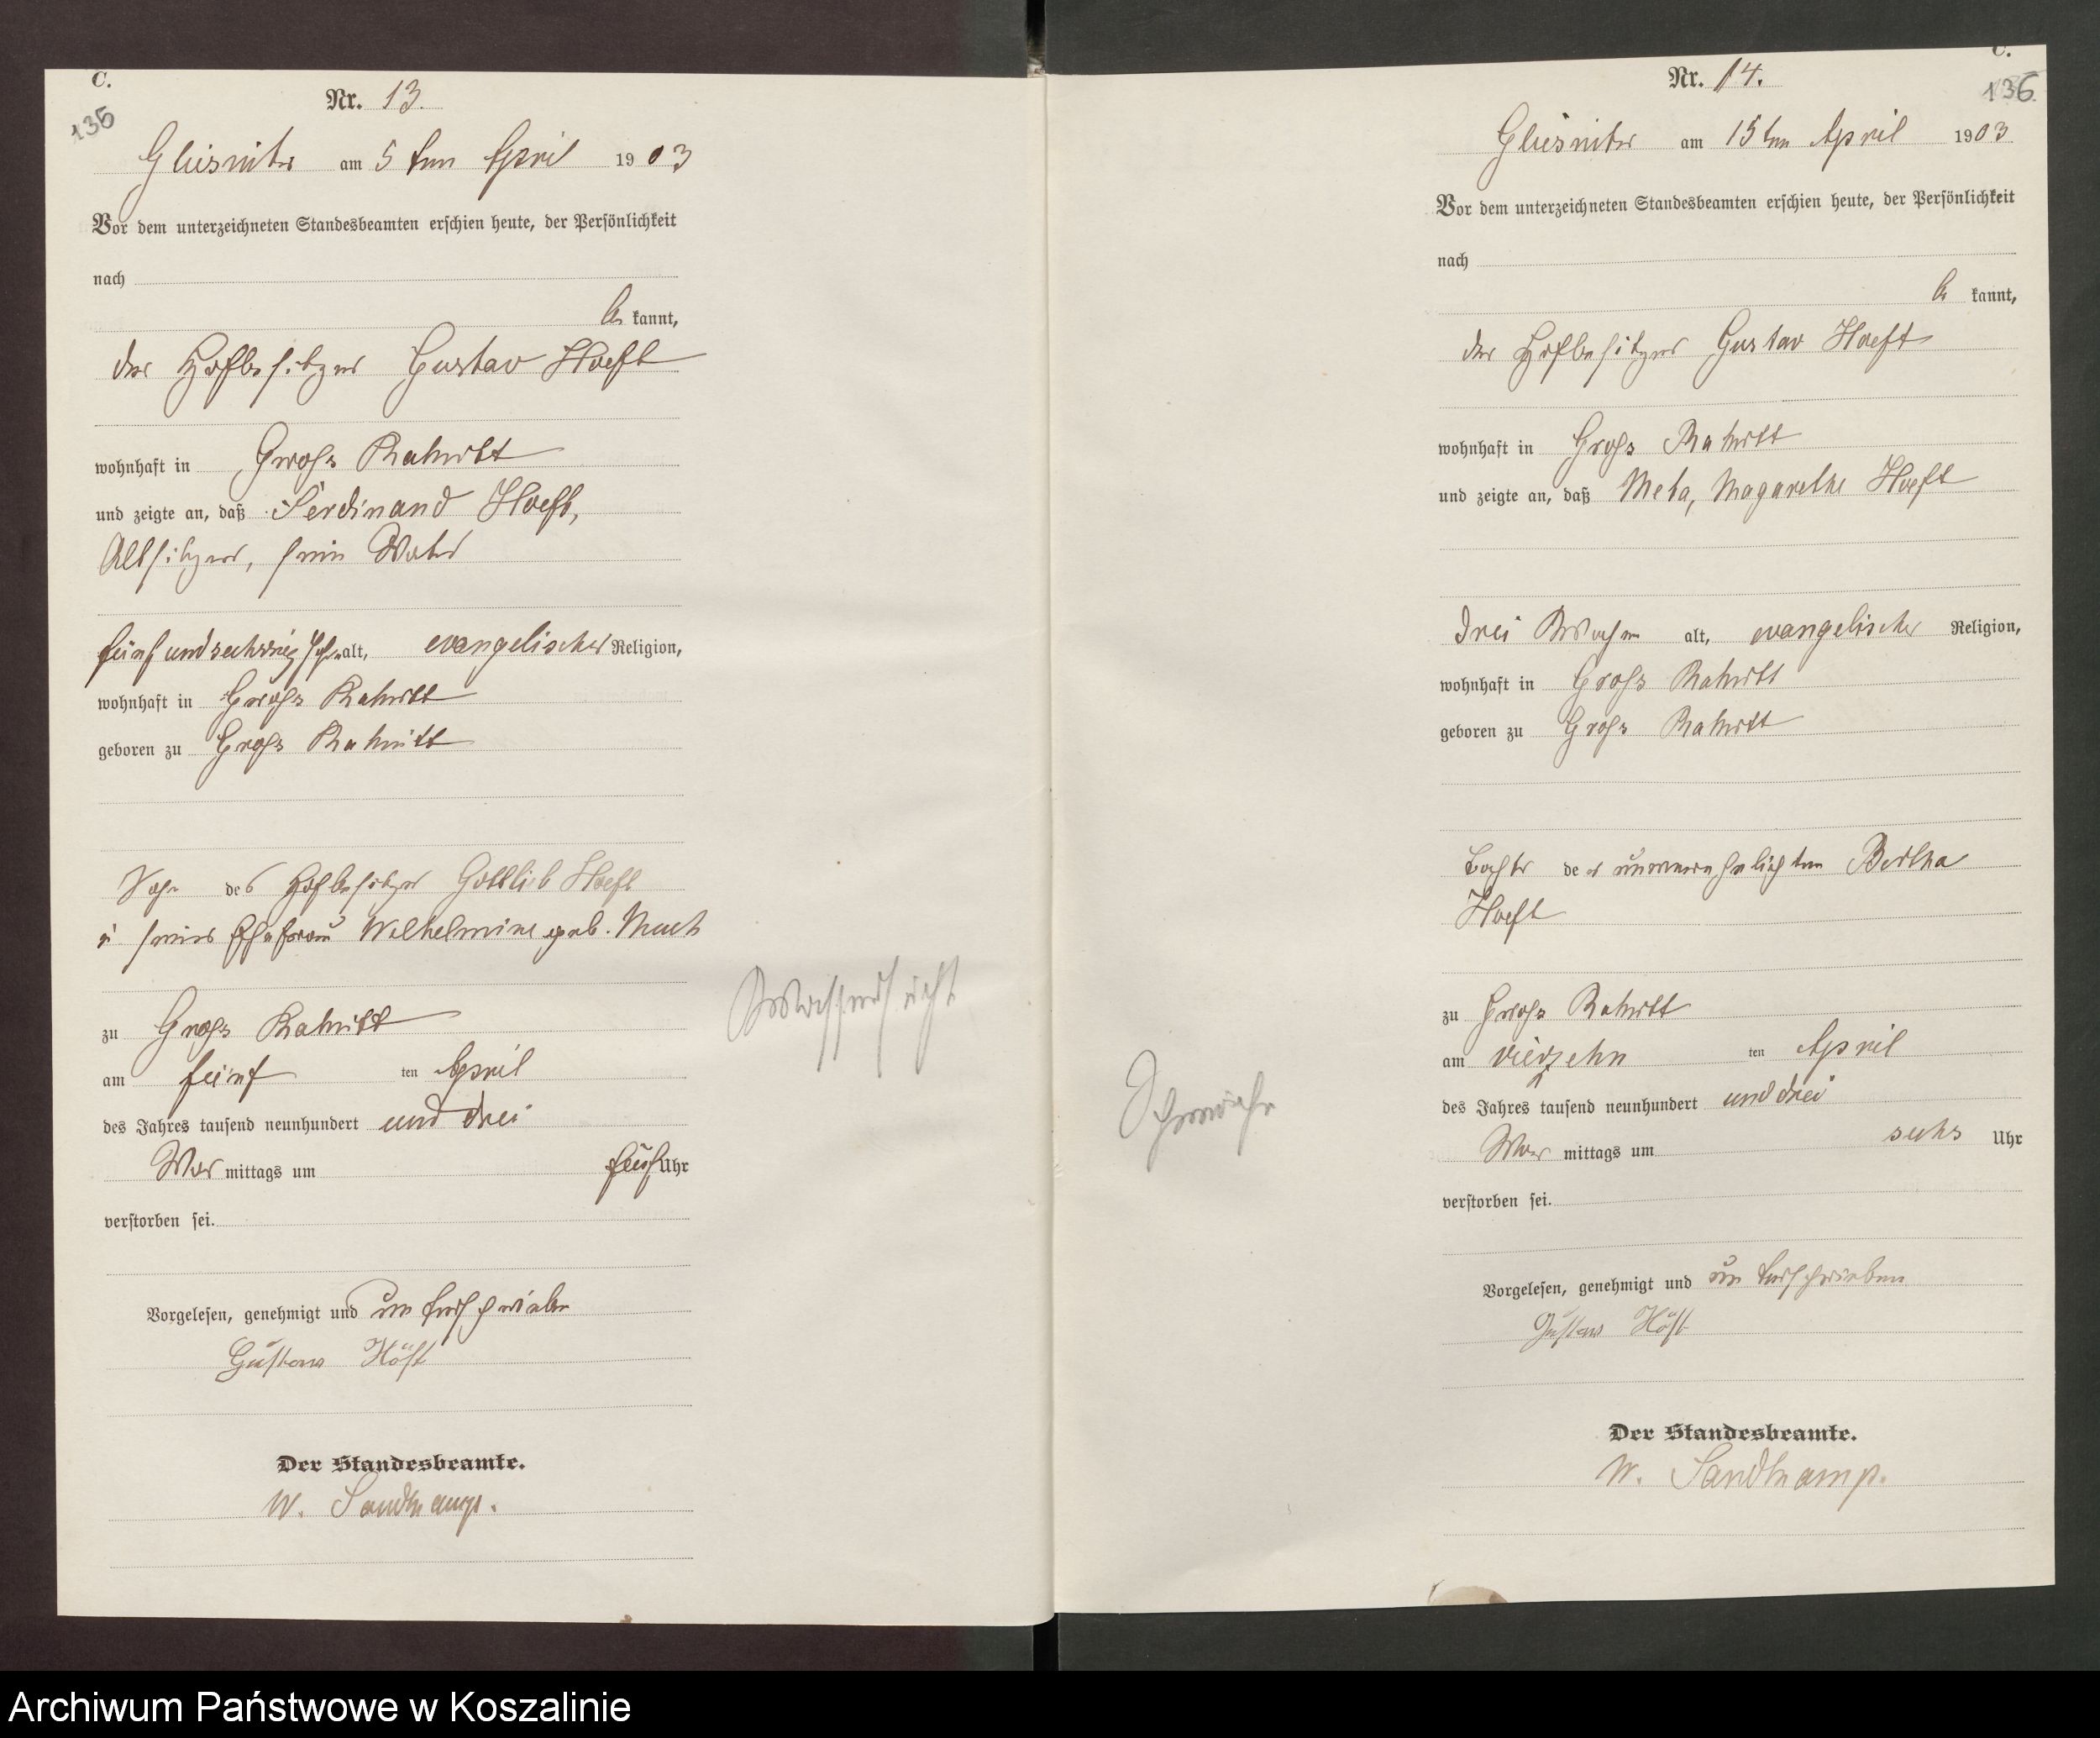 C.
135
Nr. 13.
Glüsnitz am 5 ten April 1903
Vor dem unterzeichneten Standesbeamten erschien heute, der Persönlichkeit
nach
be kannt,
der Hofbesitzer Gustav Hoeft
wohnhaft in Gross Rakitt
und zeigte an, daß Ferdinand Hoeft,
Altsitzer, sein Vater
fünfundsechzig Jahre alt, evangelischer Religion,
wohnhaft in Gross Rakitt
geboren zu Gross Rakitt
Sohn des Hofbesitzer Gottlieb Hoeft
u seiner Ehefrau Wilhelmine geb. Mach
zu Gross Rakitt
am fünf ten April
des Jahres tausend neunhundert und drei
Vor mittags um fünf Uhr
verstorben sei.
Vorgelesen, genehmigt und unterschrieben
Gustav Höft
Der Standesbeamte.
W. Sandkamp.
Wassersucht
C.
136
Nr. 14.
Glüsnitz am 15 ten April 1903
Vor dem unterzeichneten Standesbeamten erschien heute, der Persönlichkeit
nach
be kannt,
der Hofbesitzer Gustav Hoeft
wohnhaft in Gross Rakitt
und zeigte an, daß Meta, Magarethe Hoeft
drei Wochen alt, evangelischer Religion,
wohnhaft in Gross Rakitt
geboren zu Gross Rakitt
Tochter der unverehelichten Bertha
Hoeft
zu Gross Rakitt
am vierzehn ten April
des Jahres tausend neunhundert und drei
Vor mittags um sechs Uhr
verstorben sei.
Vorgelesen, genehmigt und unterschrieben
Gustav Höft
Der Standesbeamte.
W. Sandkamp.
Archiwum Państwowe w Koszalinie